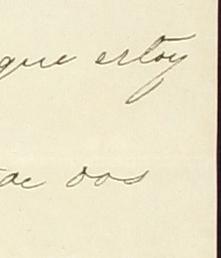 que estoy
de dos